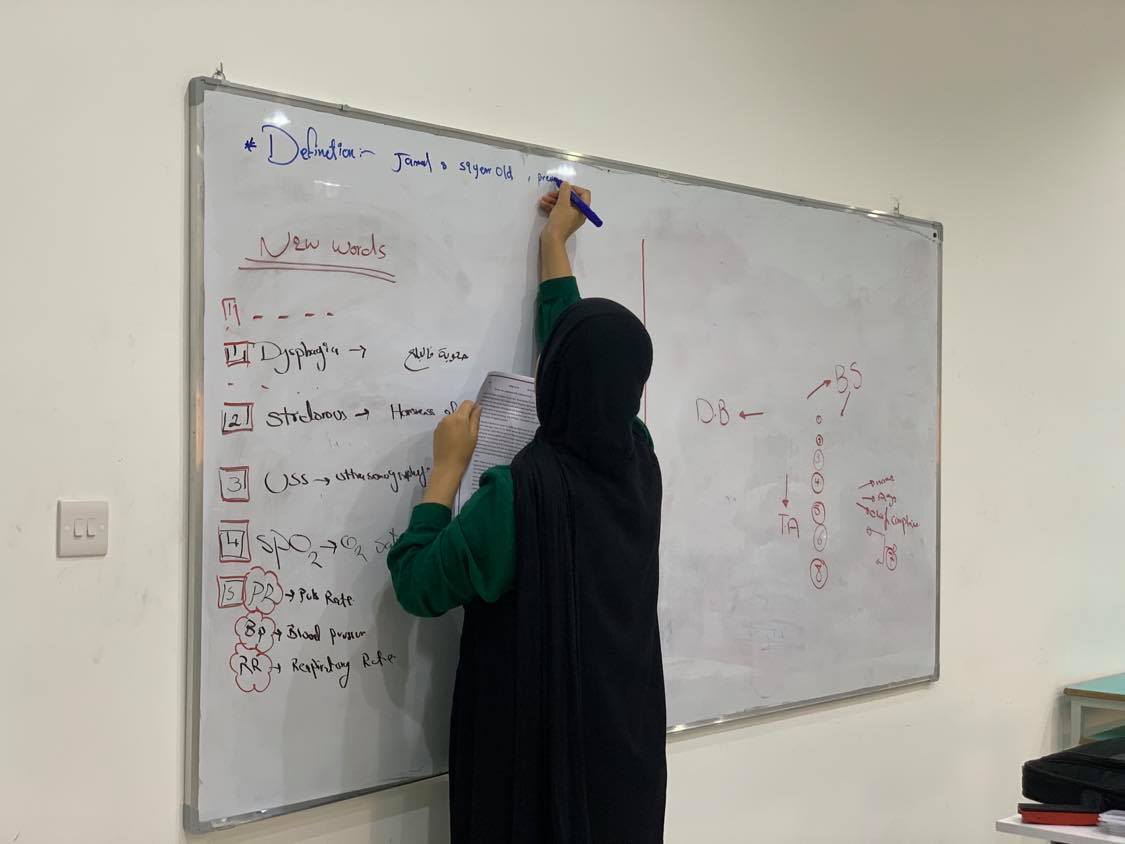 * Definition:- Jamal 59 year old ,
New words
1 - - - -
1 Dysphagia → صعوبة بالبلع
2 Stridorous → Horsness of
3 USS → ultrasonography
4 SpO2 → O2
5 PR → Puls Rate
Bp → Blood pressur
RR → Respiratory Rate
BS
D.B ←
4
5
6
T.A
8
name
Age
Chief complaint